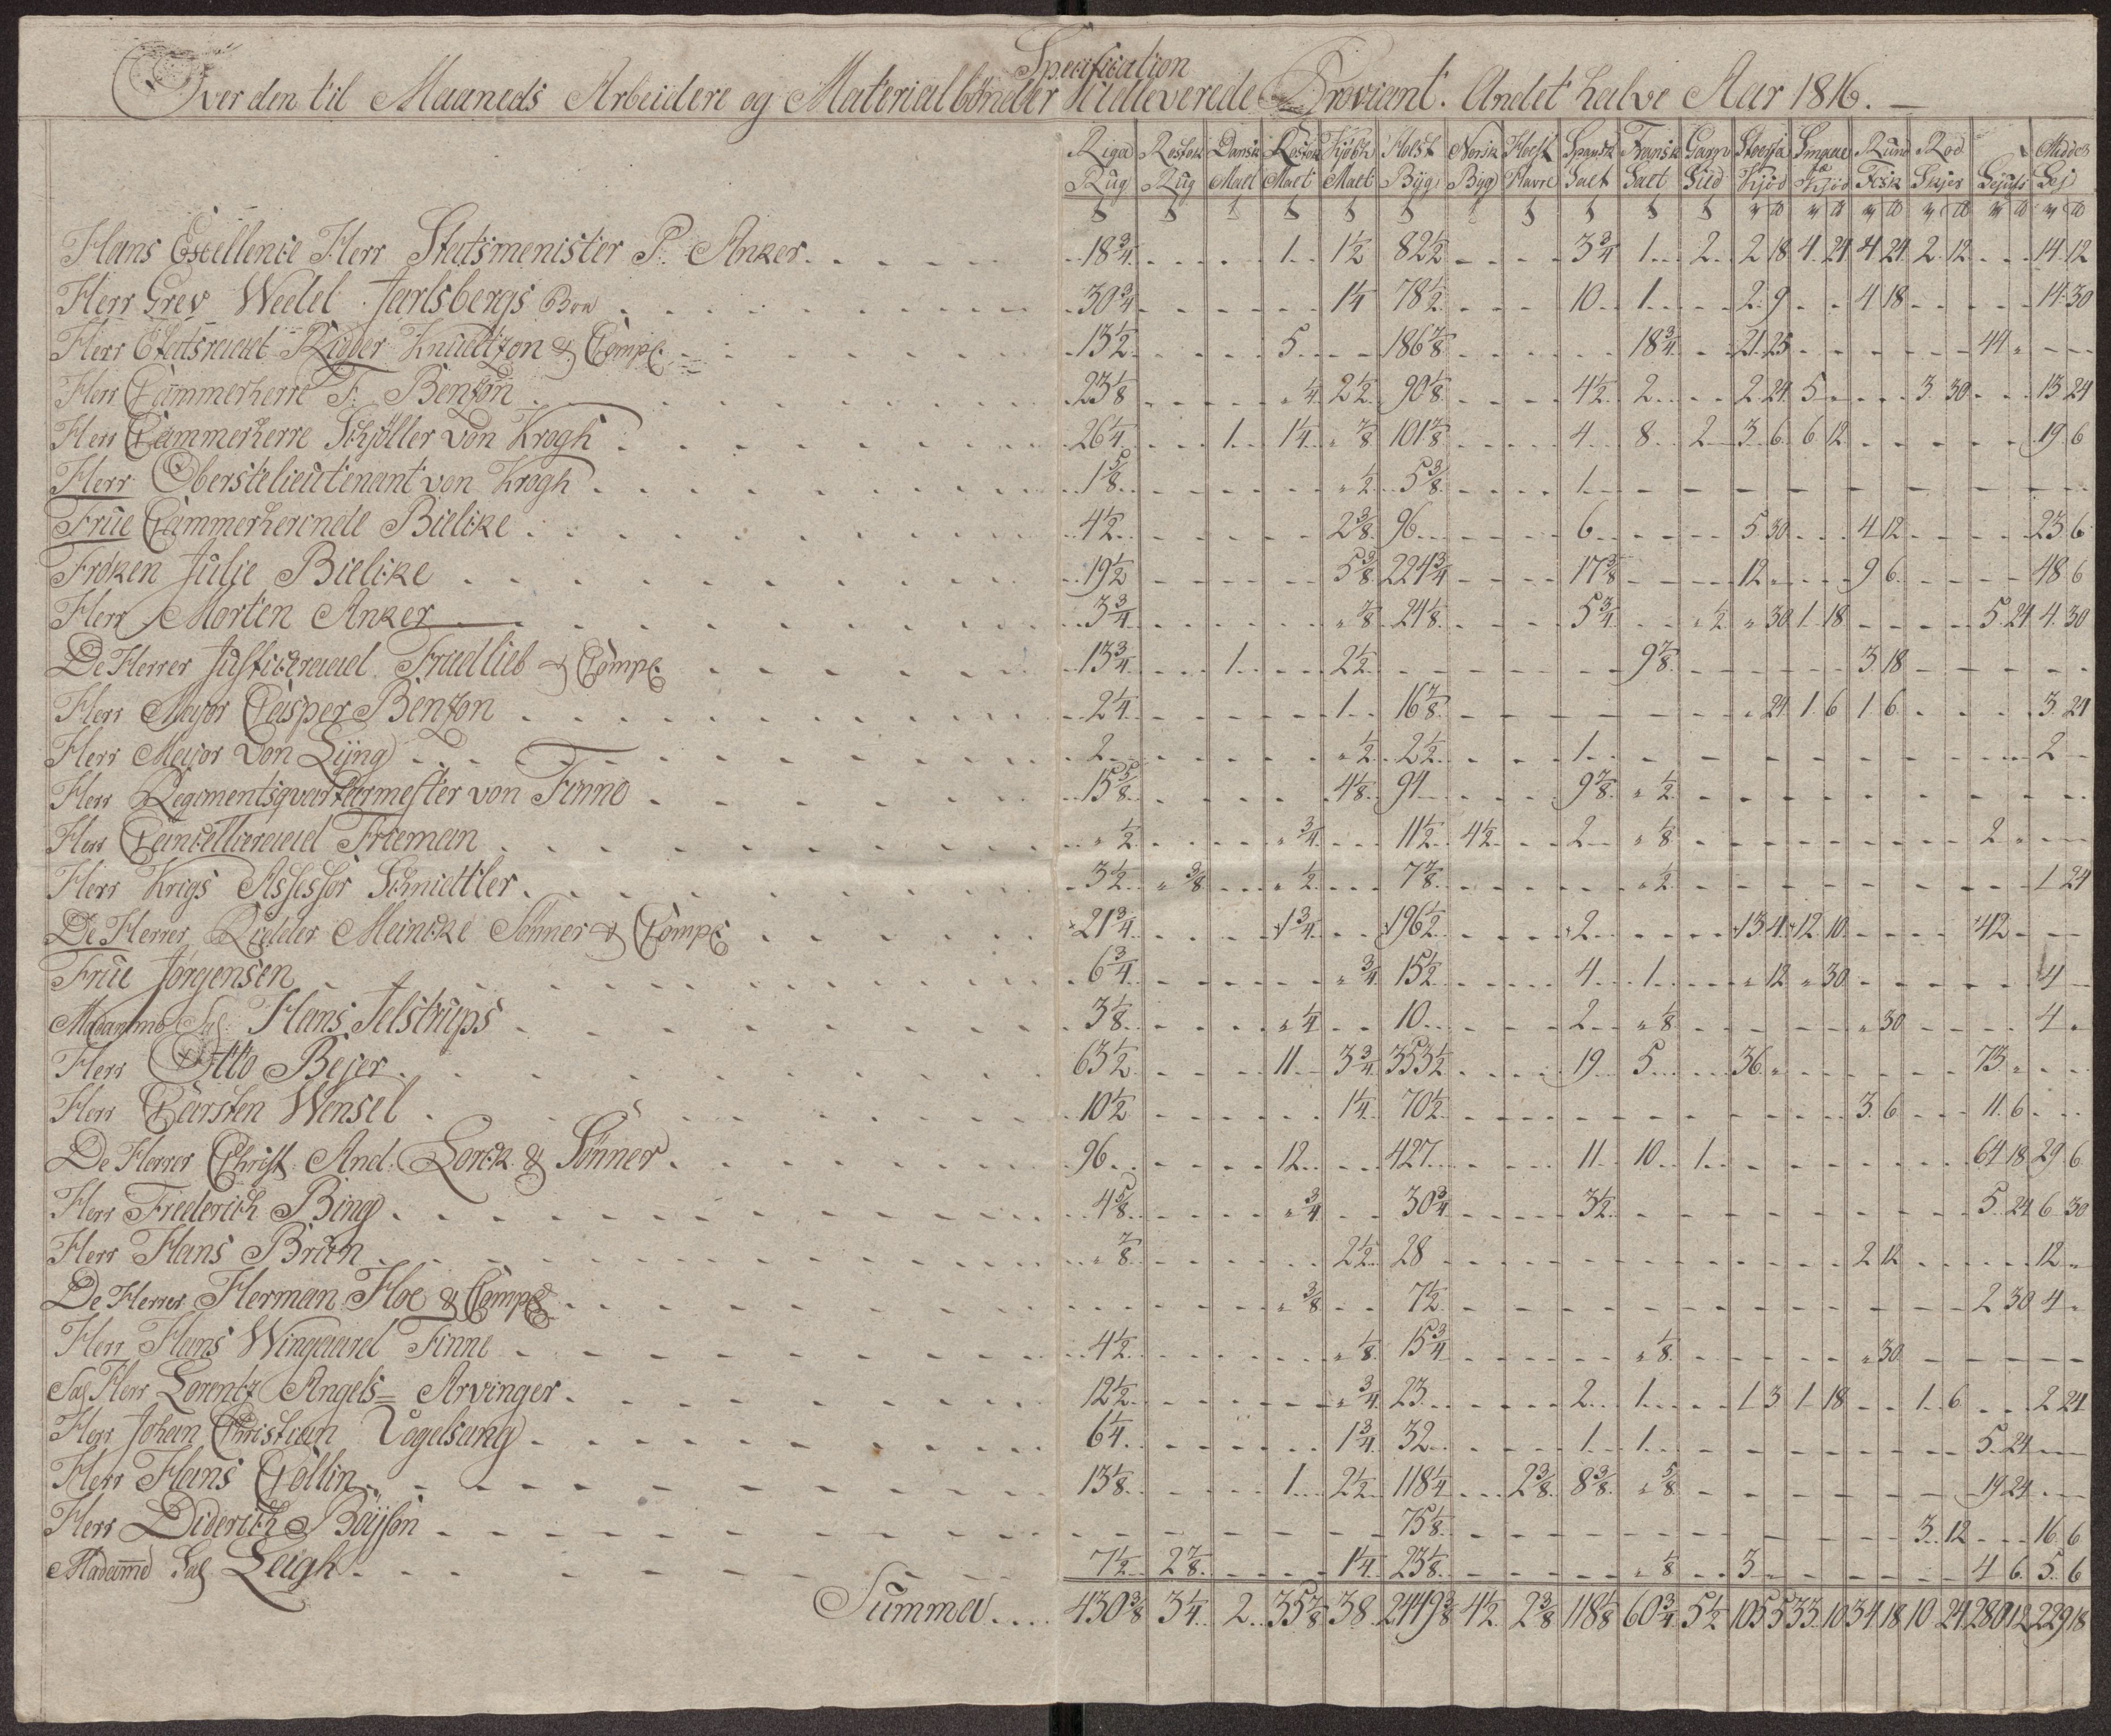 Specification
Over den til Maaneds Arbeidere og Materialbönder Udleverede Proviant. Andet halve Aar 1816. —
Riga Rug | Rostok Rug | Dansk Malt | Rostok Malt | Kjöbh Malt | Holst Byg | Norsk Byg | Holst Havre | Spansk Salt | Fransk Salt | Garp Sild | Storfæ Kjöd | Smaae fæ Kjöd | Rund Fisk | Rod Skjer | Sejufs | Middel Sej
Hans Excellence Herr Statsmenister P. Anker. 18 3/4 1 1 1/2 82 1/2 3 3/4 1 2 2 18 4 24 4 24 2 12 14 12
Herr Grev Wedel Jarlsbergs Bru 30 3/4 1 1/4 78 1/2 10 1 2 9 4 18 14 30
Herr Etatsraad Ridder Knudtzon & Comp 13 1/2 5 186 7/8 18 3/4 21 25 44 "
Herr Cammerherre F. Benzon 23 1/8 " 1/4 2 1/2 90 1/8 4 1/2 2 2 24 5 3 30 13 24
Herr Cammerherre Schjöller von Krogh 26 1/4 1 1 1/4 " 7/8 101 7/8 4 8 2 3 6 6 12 19 6
Herr Oberstelieutenant von Krogh 1 5/8 " 1/2 5 3/8 1
Frue Cammerherinde Bielcke 4 1/2 2 3/8 96 6 5 30 4 12 23 6
Fröken Julje Bielcke 19 1/2 5 3/8 224 3/4 17 3/8 12 9 6 48 6
Herr Morten Anker 3 3/4 " 7/8 24 1/8 5 3/4 " 1/2 " 30 1 18 5 24 4 30
De Herrer Justiceraad Friedlieb & Comp 13 3/4 1 2 1/2 9 7/8 3 18
Herr Major Casper Benzon 2 1/4 1 16 7/8 " 24 1 6 1 6 3 24
Herr Major von Lyng 2 " 1/2 2 1/2 1 2
Herr Regimentsqvarteermester von Finne 15 5/8 4 1/8 94 9 7/8 " 1/2
Herr Cancelliraad Frieman " 1/2 " 3/4 11 1/2 4 1/2 2 " 1/8 2 "
Herr Krigs Assessor Schnidtler 3 1/2 " 3/8 " 1/2 7 7/8 " 1/2 1 24
De Herrer Ridder Meincke Sönner & Comp 21 3/4 1 3/4 196 1/2 2 13 4 12 10 42
Frue Jörgensen 6 3/4 " 3/4 15 1/2 4 1 " 12 " 30 4
Madamme Sal. Hans Jelstrups 3 1/8 " 1/4 10 2 " 1/8 " 30 4 "
Herr Otto Bejer 63 1/2 11 3 3/4 353 1/2 19 5 36 " 73 "
Herr Carsten Wensel 10 1/2 1 1/4 70 1/2 3 6 11 6
De Herrer Christ. And. Lorck & Sönner 96 12 427 11 10 1 64 18 29 6
Herr Friederich Bing 4 5/8 " 3/4 30 3/4 3 1/2 5 24 6 30
Herr Hans Bruun " 7/8 2 1/2 28 2 12 12 "
De Herrer Herman Hoe & Comp " 3/8 7 1/2 2 30 4 "
Herr Hans Wingaard Finne 4 1/2 " 1/8 15 3/4 " 1/8 " 30
Sal Herr Lorentz Angels = Arvinger 12 1/2 " 3/4 23 2 1 1 3 1 18 1 6 2 24
Herr Johan Christian Vogelsang 6 1/4 1 3/4 32 1 1 5 24
Herr Hans Collin 13 1/8 1 2 1/2 118 1/4 2 3/8 8 3/8 " 5/8 19 24
Herr Diderich Böyson 75 1/8 3 12 16 6
Madamme Sal Leigh 7 1/2 2 7/8 1 1/4 23 1/8 " 1/8 3 4 6 5 6
Summa 430 3/8 3 1/4 2 35 7/8 38 2449 3/8 4 1/2 2 3/8 118 1/8 60 3/4 5 1/2 105 5 33 10 34 18 10 24 280 12 229 18